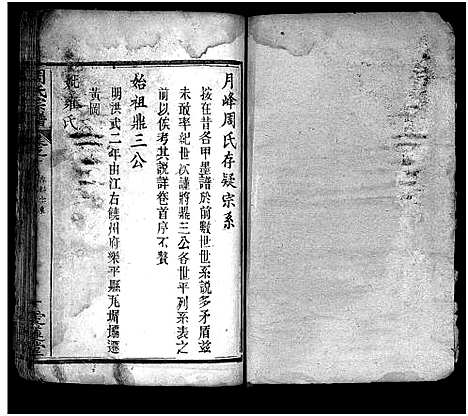 月峰周氏存疑宗系
按在昔各甲墨譜於前數世世系說多矛盾茲
未敢率紀世次謹將鼎三公各世平列系表之
前以俟考其說詳卷首序不贅
始祖鼎三公
明洪武二年由江右饒州府樂平縣瓦屑壩遷
黃岡